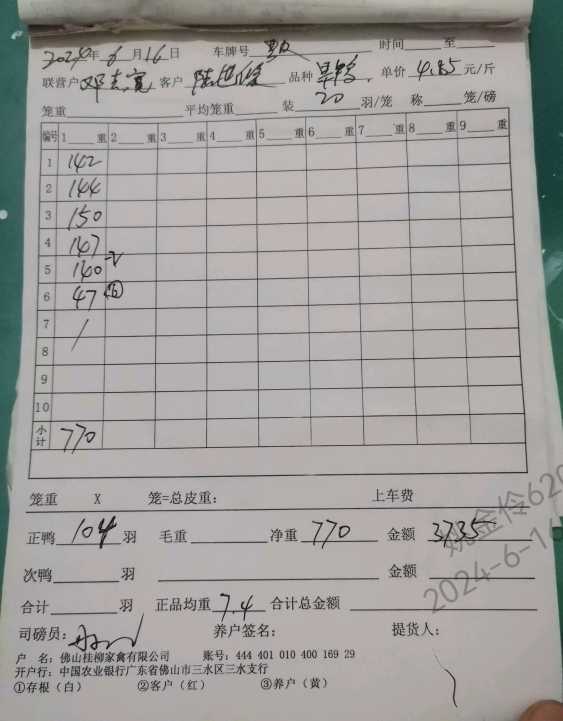 2024年6月16日 车牌号 时间 至
联营户 邓志宽 客户 品种 单价 4.85 元/斤
笼重 平均笼重 装 20 羽/笼 称 笼/磅
编号 1 重 2 重 3 重 4 重 5 重 6 重 7 重 8 重 9 重
1 142
2 144
3 150
4 147
5 140
6 47
7
8
9
10
小计 770
笼重 X 笼=总皮重: 上车费
正鸭 104 羽 毛重 净重 770 金额 3735
次鸭 羽 金额
合计 羽 正品均重 7.4 合计总金额
司磅员: 养户签名: 提货人:
户 名: 佛山桂柳家禽有限公司 账号: 444 401 010 400 169 29
开户行: 中国农业银行广东省佛山市三水区三水支行
①存根(白) ②客户(红) ③养户(黄)
姚金伶620
2024-6-1